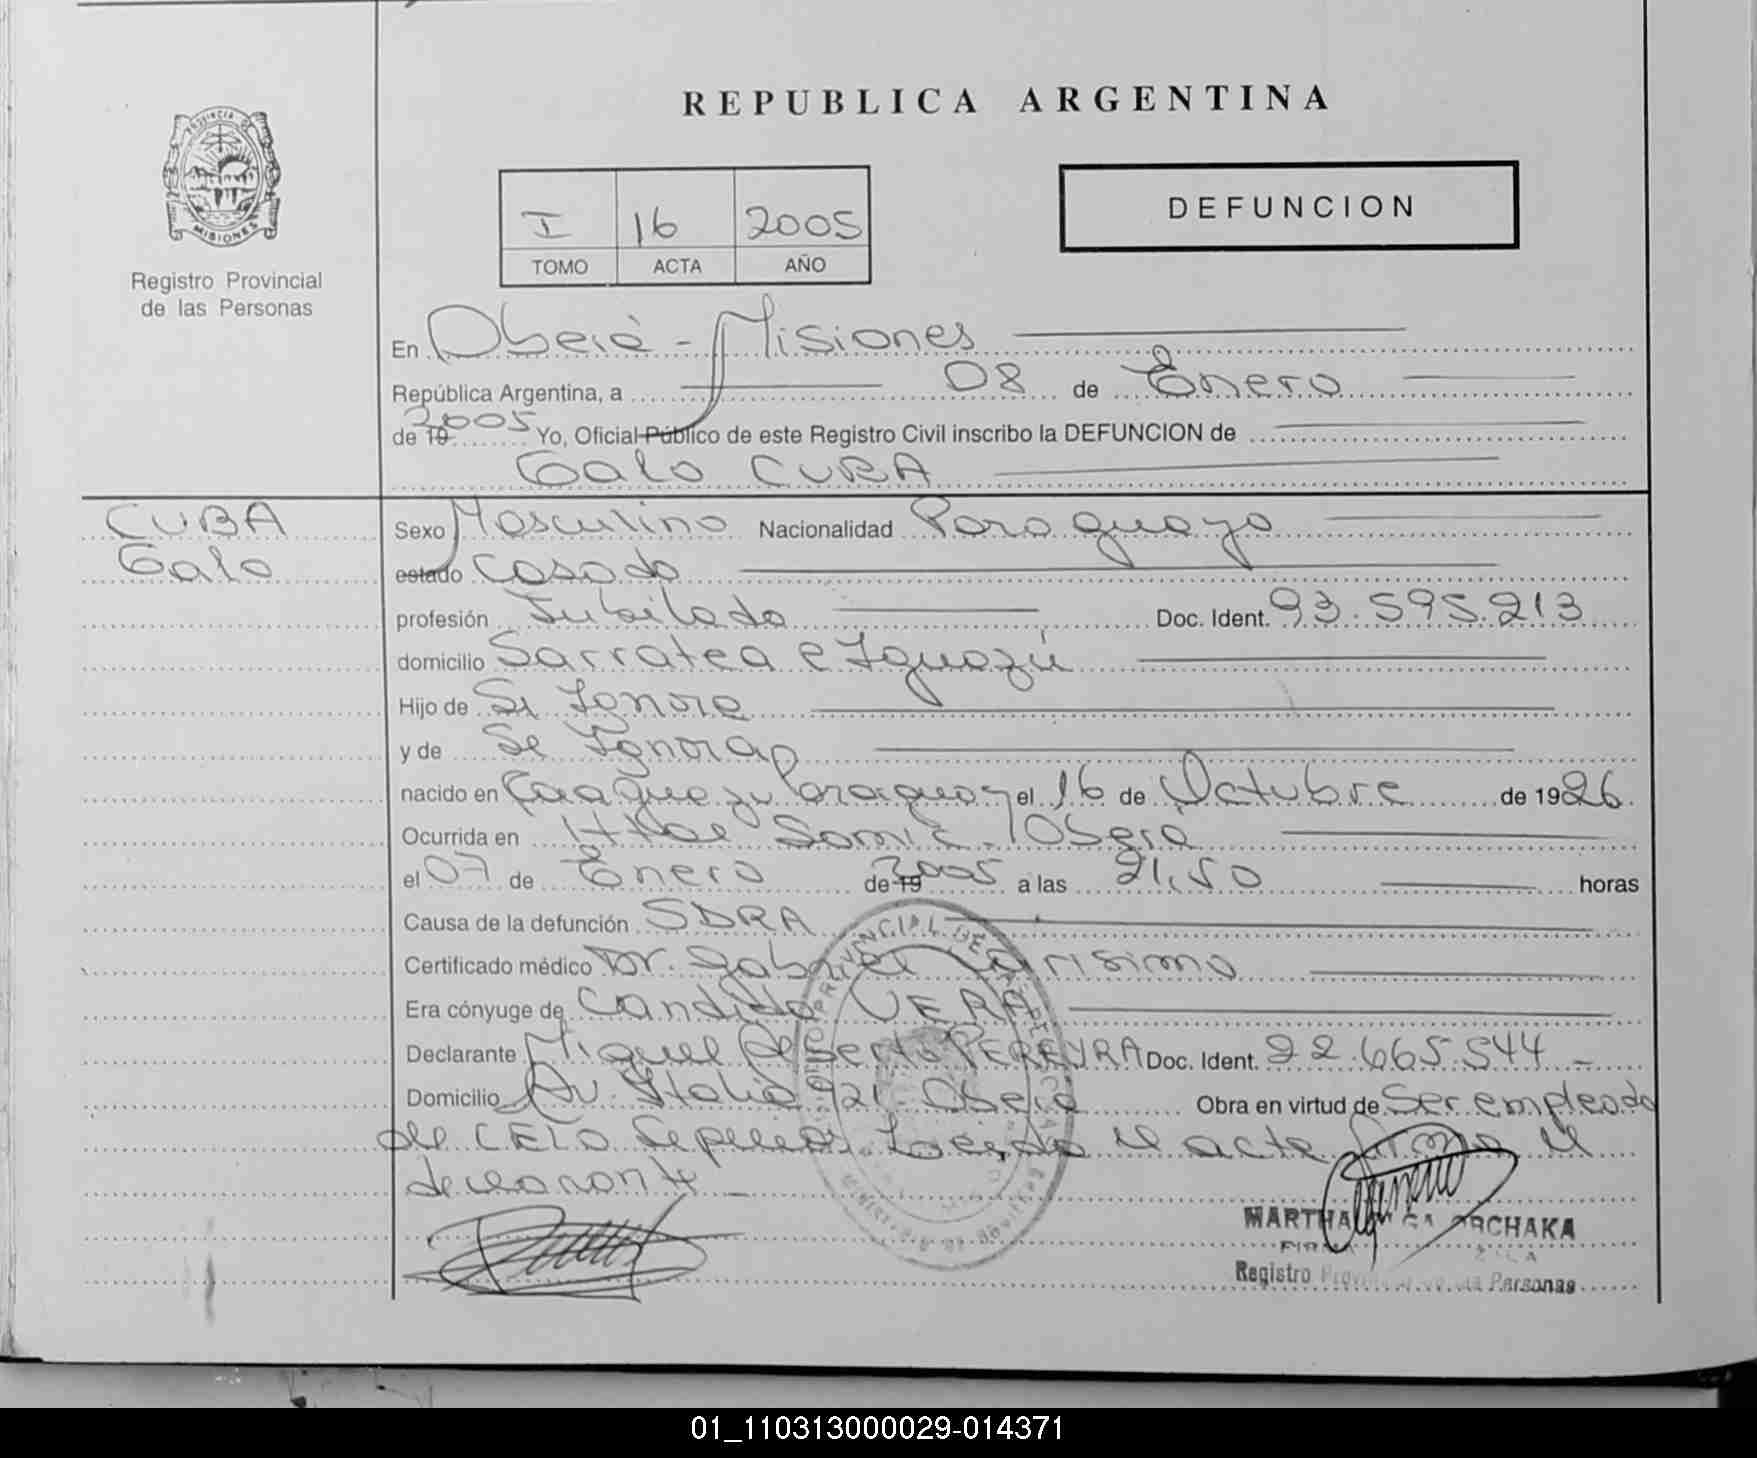 REPUBLICA ARGENTINA
PROVINCIA DE
MISIONES
Registro Provincial
de las Personas
I 16 2005
TOMO ACTA AÑO
DEFUNCION
En Oberá - Misiones
República Argentina, a 08 de Enero
de 19 2005 Yo, Oficial Público de este Registro Civil inscribo la DEFUNCION de
Galo CUBA
CUBA
Galo
Sexo Masculino Nacionalidad Paraguaya
estado Casado
profesión Jubilado Doc. Ident. 93.595.213
domicilio Sarratea e Iguazú
Hijo de Se Ignora
y de Se Ignora
nacido en Caaguazu Paraguay el 16 de Octubre de 1926.
Ocurrida en Htal Samic. Oberá
el 07 de Enero de 19 2005 a las 21,50 horas
Causa de la defunción SDRA
Certificado médico Dr. Gabriel
Era cónyuge de Candida VERA
Declarante Miguel Alberto PEREYRA Doc. Ident. 22.665.544 -
Domicilio Av. Italia 921. Oberá Obra en virtud de Ser empleado
de CELO Sepelios Leída el acta firma el
declarante -
MARTHA ORCHAKA
Registro Personas
01_110313000029-014371